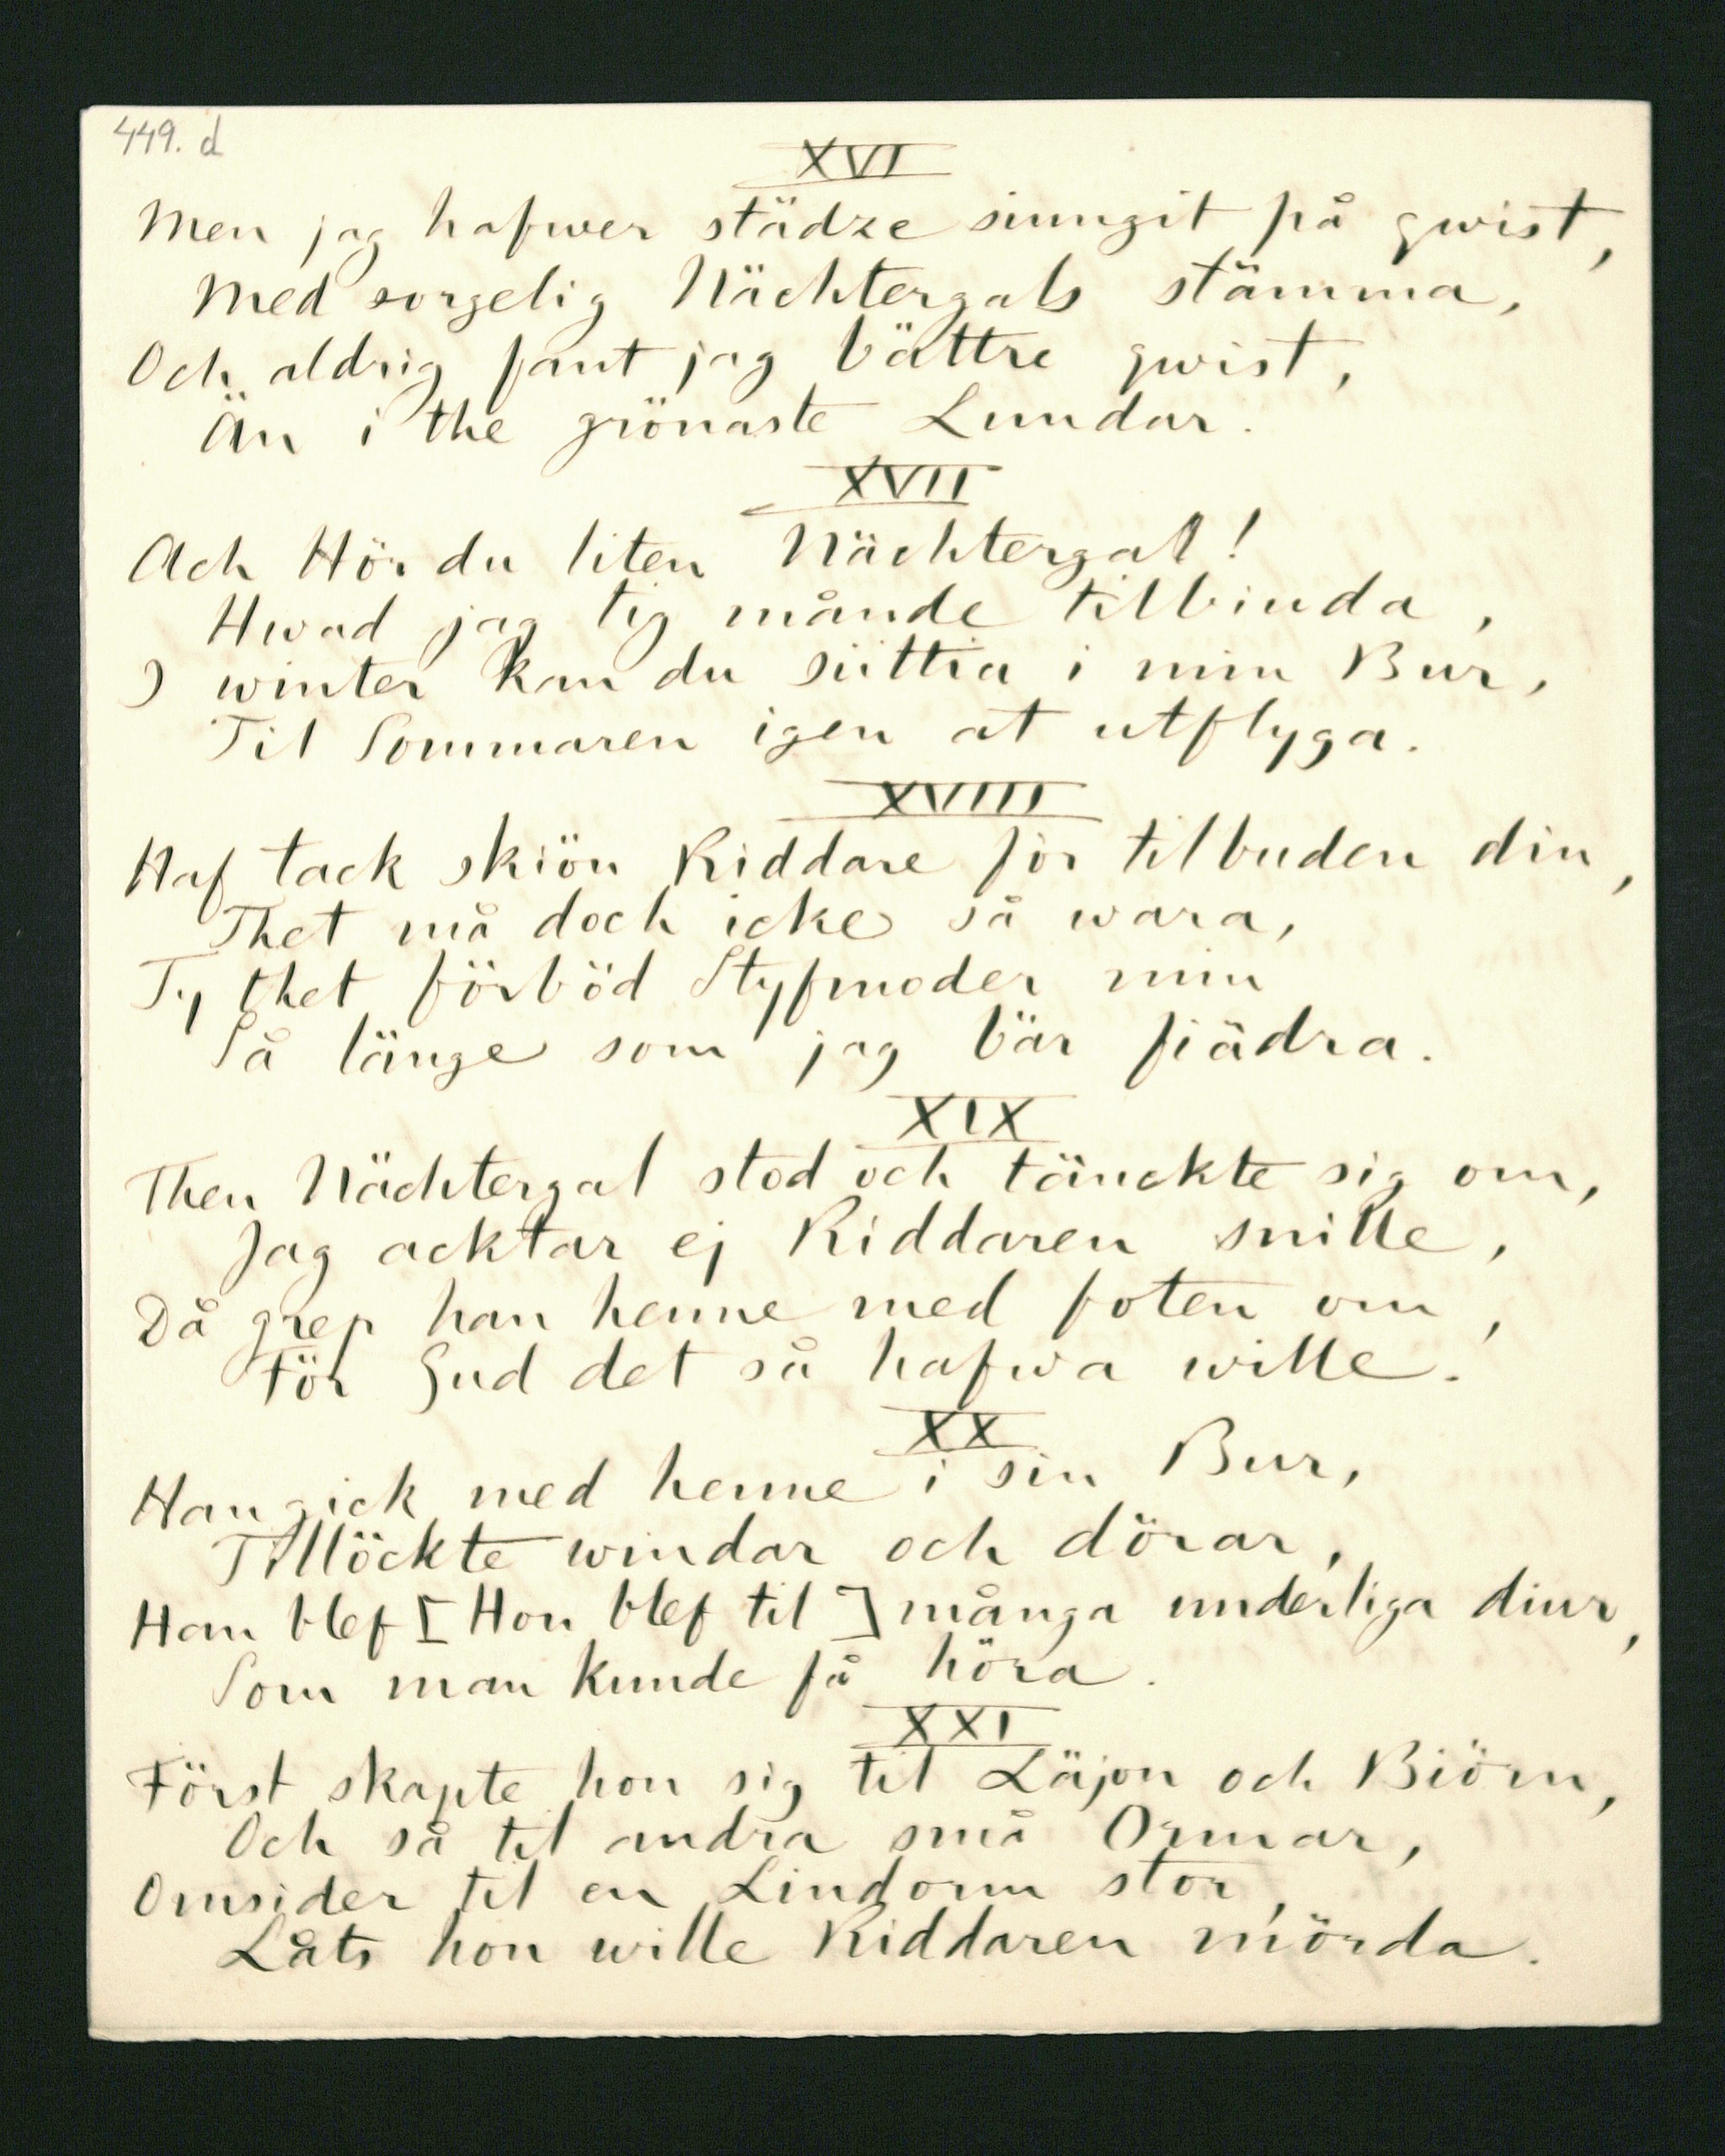 449. d
XVI
Men jag hafwer städze siungit på qwist,
Med sorgelig Nächtergals stämma,
Och aldrig fant jag bättre qwist,
Än i the grönaste Lundar.
XVII
Ach Hör du liten Nächtergal!
Hwad jag tig månde tilbiuda,
I winter kan du sittia i min Bur,
Til Sommaren igen at utflyga.
XVIII
Haf tack skiön Riddare för tilbuden din,
Thet må doch icke så wara,
Ty thet förböd Styfmoder min
Så länge som jag bär fiädra.
XIX
Then Nächtergal stod och tänckte sig om,
Jag acktar ej Riddaren snille,
Då grep han henne med foten om,
För Gud det så hafwa wille.
XX
Han gick med henne i sin Bur,
Tillöckte windar och dörar,
Han blef [Hon blef til] många underliga diur,
Som man kunde få höra.
XXI
Först skapte hon sig til Läjon och Biörn,
Och så til andra små Ormar,
Omsider til en Lindorm stor,
Låts hon wille Riddaren mörda.